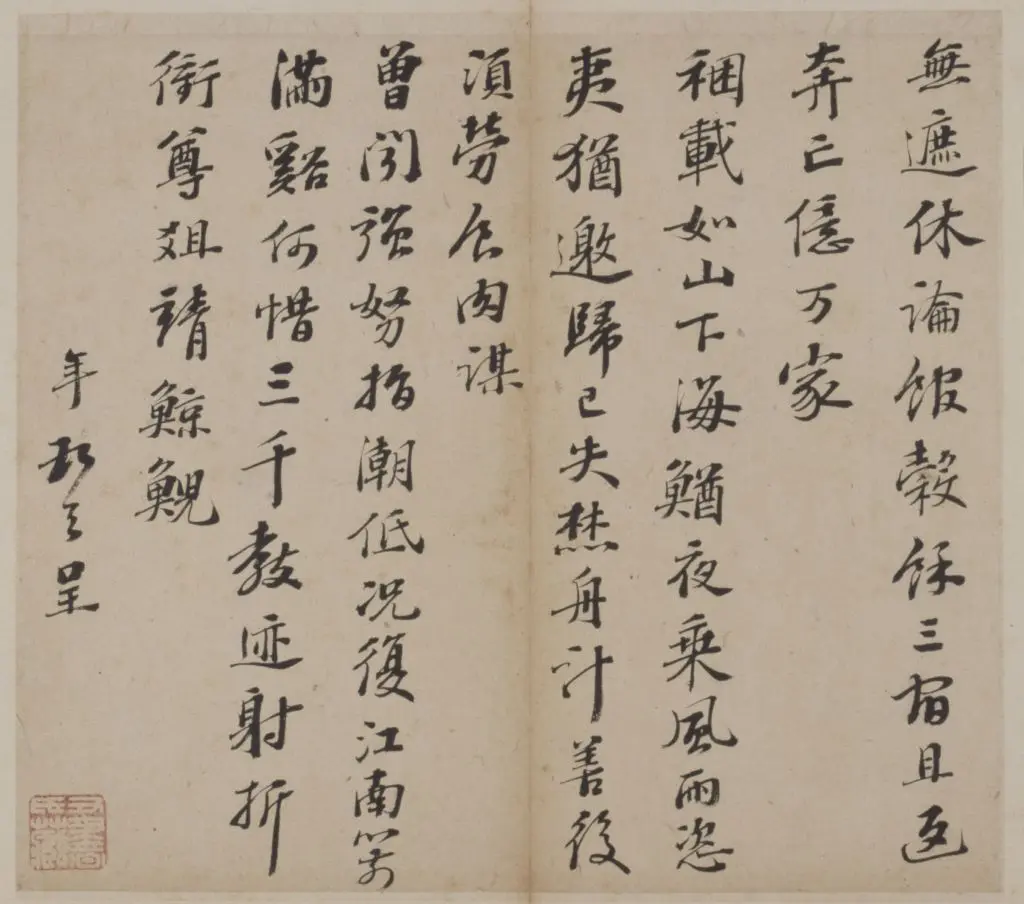 無遮休論館穀餘三宿且返
奔亡億万家
稇載如山下海鰌夜乘風雨恣
夷猶邀歸已失焚舟計善後
須勞食肉謀
曾聞強弩指潮低况復江南箭
滿谿何惜三千教迹射折
衝尊俎靖鯨鯢
年 呈